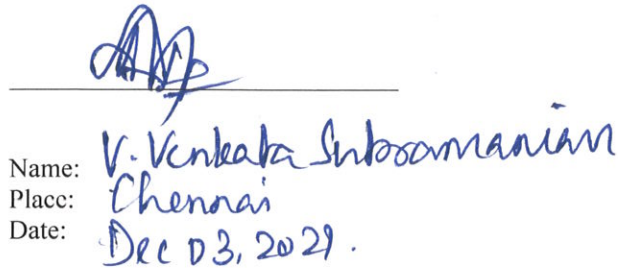 Name: V. Venkata Subramanian
Place: Chennai
Date: Dec 03, 2021.